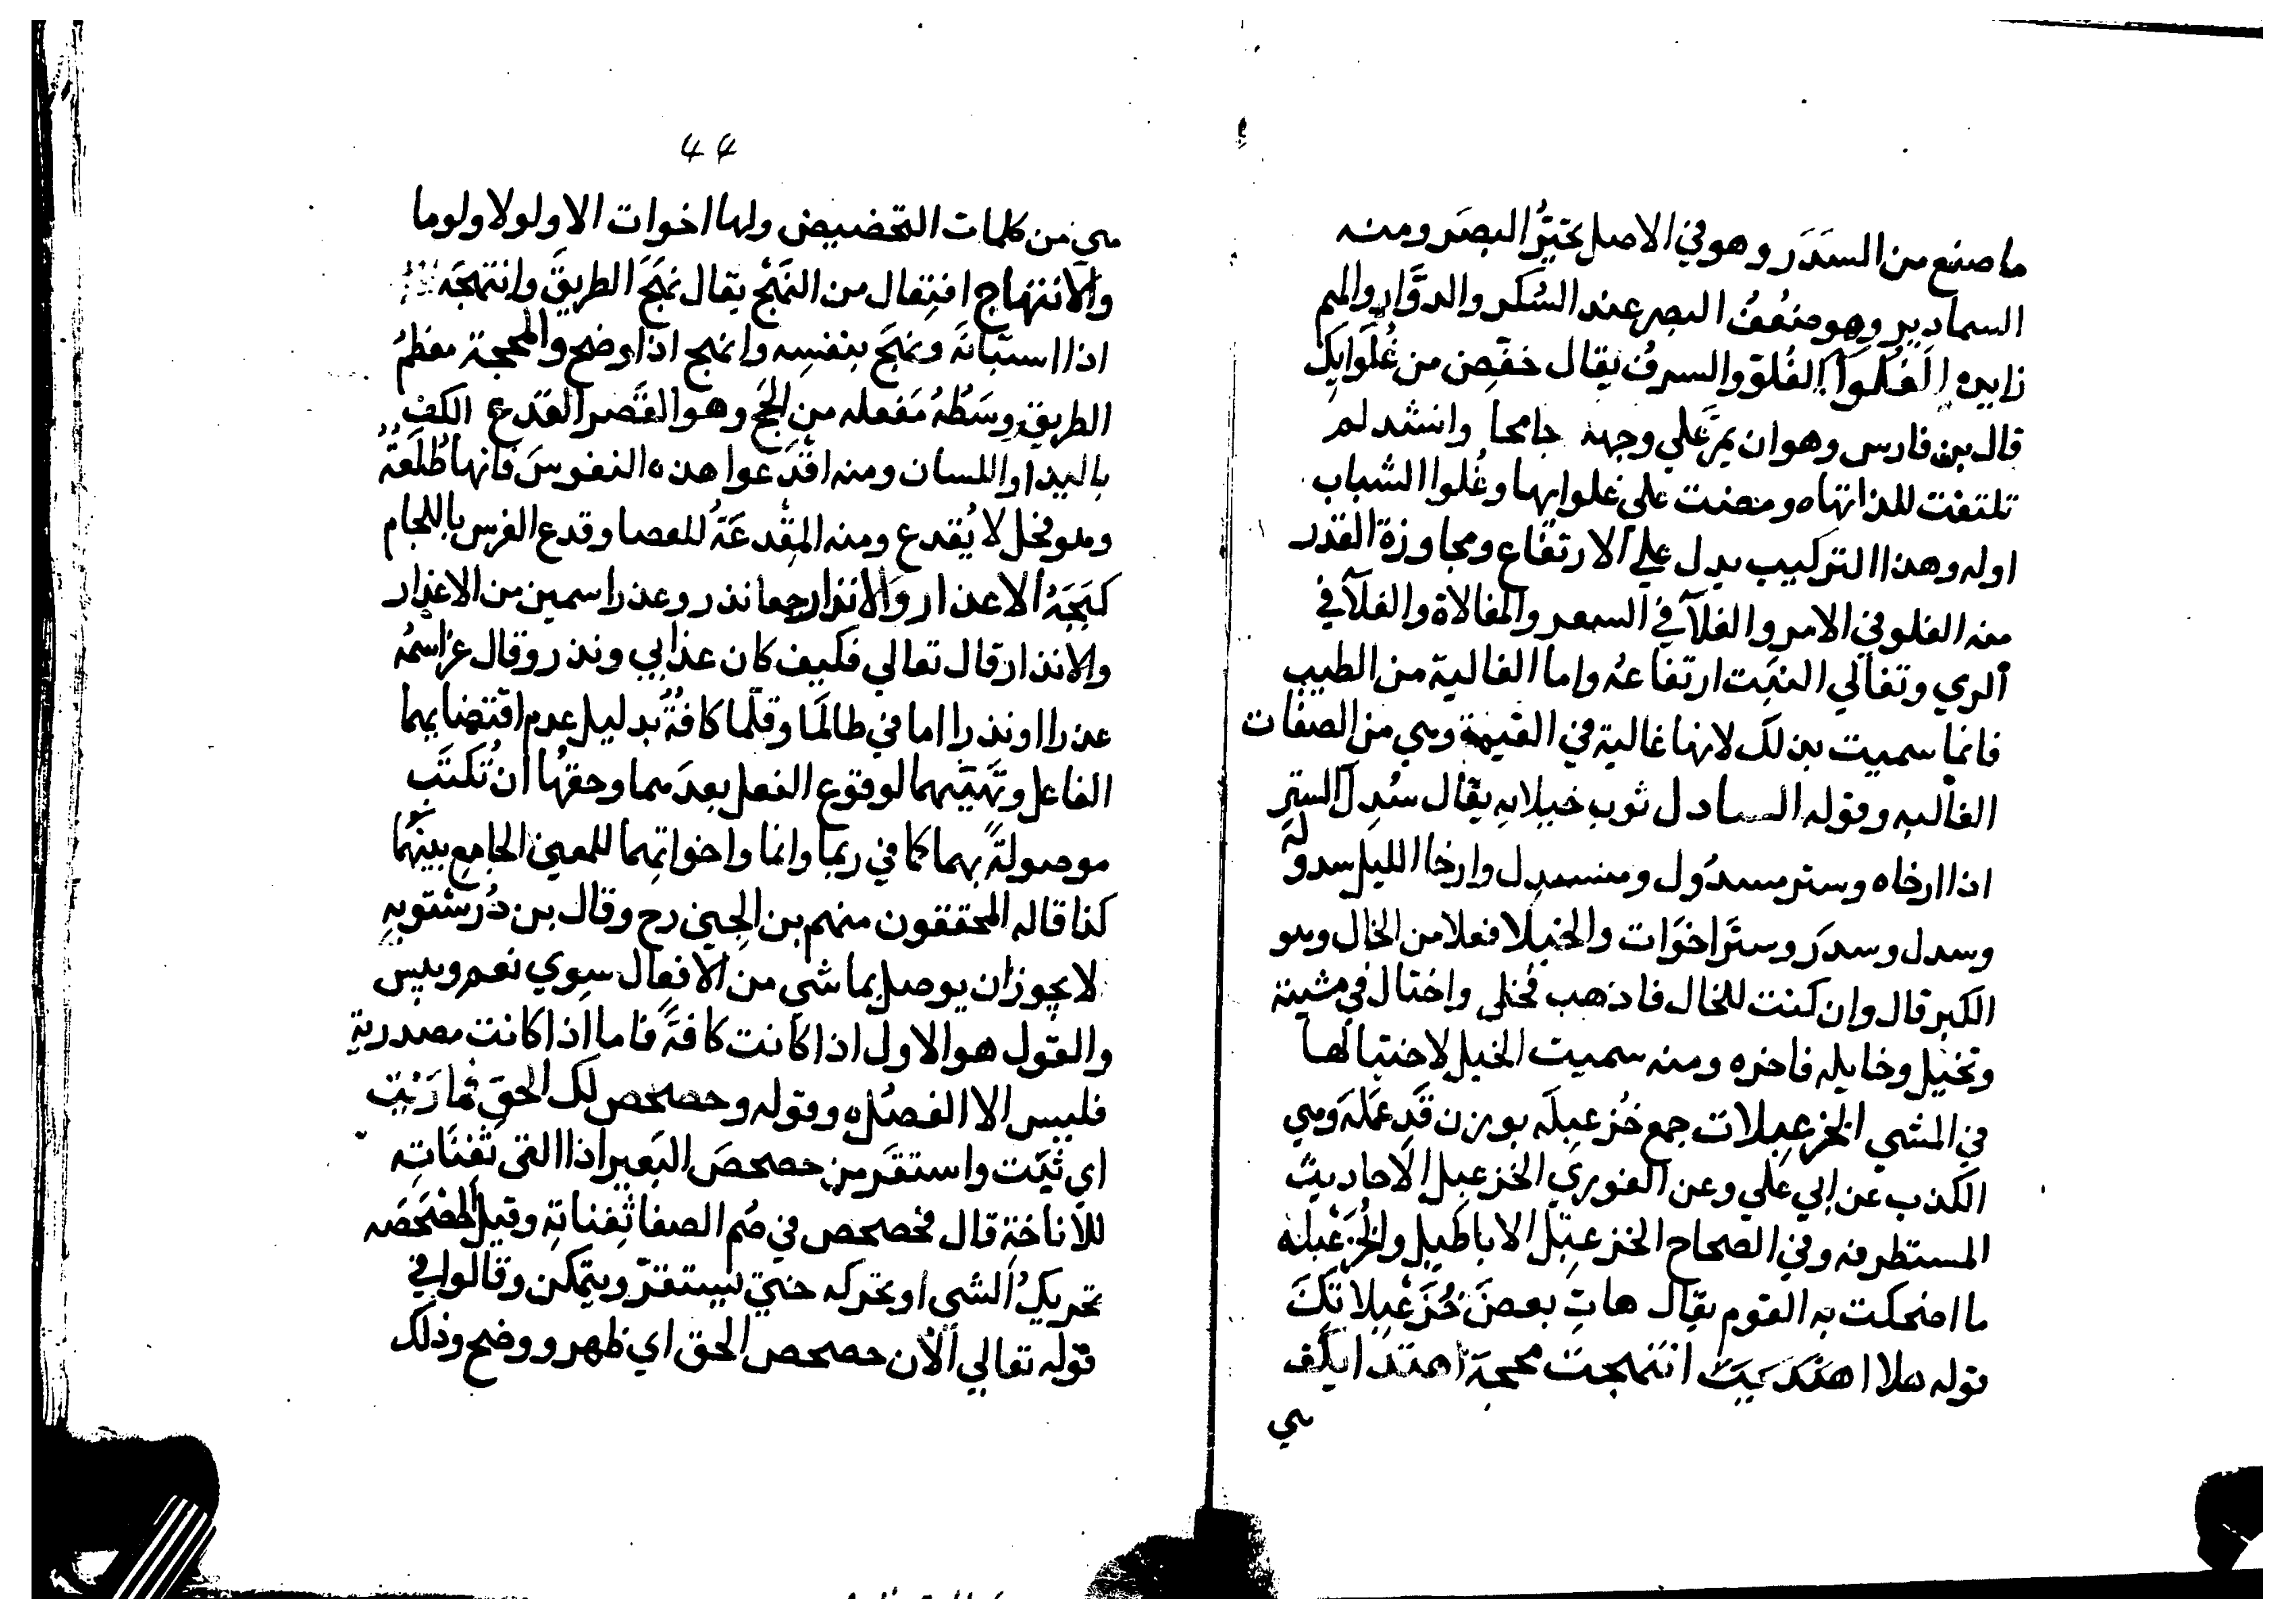 ما صنع من السَدَر وهو في الاصل تحيُّر البصَر ومنه
السمادير وهو ضُعْفُ البصر عند السُكر والدوَّار والميم
زايده الغُلَوَا الغُلوّ والسرفُ يقال خفّض من غُلَوايك
قال بن فارس وهو ان يمرَّ علي وجهه جامحا وانشد لم
تلتفت للذاتهاه ومضت علي غلوايها وغُلوا الشباب
اوله وهذا التركيب يدل علي الارتفاع ومجاوزة القدر
منه الغلو في الامر والغلآ في السعر والمغالاة والغلآ في
الري وتغالي النبت ارتفاعُه واما الغالية من الطيب
فانما سميت بذلك لانها غالية في القيمة وهي من الصفات
الغالبه وقوله السادل ثوب خيلايه يقال سُدِل الستر
اذا ارخاه وستر مسدُول ومنسدل وارخا الليل سدولَه
وسدل وسدَر وستَر اخَوات والخيلا فعلا من الخال وهو
الكبر قال وان كنت للخال فاذهب فخلى واختال في مشيته
وتخيل وخايله فاخره ومنه سميت الخيل لاختيالها
في المشي الخزعبلات جمع خُزعبلَه بوزن قَدعملَه وهي
الكذب عن ابي علي وعن الغوري الخزعبل الاحاديث
المستطرفه وفي الصحاح الخزعبل الاباطيل والخُزَعْبله
ما اضحكت به القوم يقال هاتِ بعضَ خُزَعْبِلاتكَ
قوله هلا انتهجت محجة اهتدايك
هي
44
هي من كلمات التحضيض ولها اخوات الا ولولا ولوما
والانتهاج افتعال من النَهْج يقال نهَجَ الطريقَ وانتهجَه
اذا استبانَه ونهَج بنفسه وانهج اذا وضح والمحجة معظمُ
الطريق وسَطُهُ مَفعله من الحَج وهو القَصر القدع الكف
باليد او اللسان ومنه اقدَعوا هذه النفوسَ فانها طُلَعَةٌ
وهو فحل لا يُقدع ومنه المِقْدعَةُ للعصا وقدع الفرس باللجام
كبَحَهُ الاعذار والانذار جعل نذر وعذر اسمين من الاعذار
والانذار قال تعالي فكيف كان عذابي ونذر وقال عز اسمُه
عذرا او نذرا اما في طالَما وقلَّما كافةٌ بدليل عدم اقتضايهما
الفاعل وتَهيّيهما لوقوع الفعل بعدَهما وحقهُا ان تُكتَب
موصولةً بهما كما في ربما وانما واخواتِهما للمعني الجامع بينَهُما
كذا قاله المحققون منهم بن الجِني رح وقال بن دُرستويه
لا يجوز ان يوصل بما شي من الافعال سِوي نعم وبيس
والقول هو الاول اذا كانت كافةً فاما اذا كانت مصدرية
فليس الا الفصلُ ه وقوله وحصحص لك الحق فما رَيْت
اي ثبت واستقَر من حصحصَ البعير اذا القى ثَفِنَاتِه
للاناخةِ قال فحصحص في صُم الصفا ثفِناتِهِ وقيل الحصحصَه
تحريكُ الشي او تحركه حتي يستقرّ ويتمكن وقالوا في
قوله تعالي الآن حصحص الحق اي ظهر ووضح وذلك